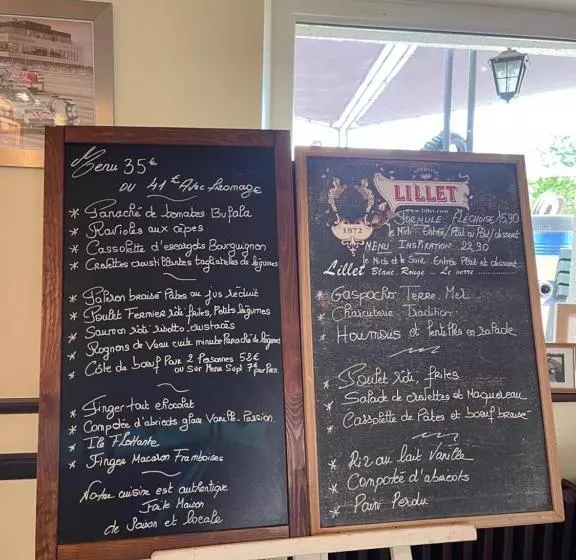 Menu 35€
ou 41€ Avec fromage
* Panaché de tomates Bufala
* Ravioles aux cèpes
* Cassolette d'escargots Bourguignon
* Crevettes crush Blantes tagliatelles de légumes
* Paleron braisé Pâtes au jus réduit
* Poulet Fermier rôti frites, Petits légumes
* Saumon rôti risotto crustacés
* Rognons de Veau cuits minute Panaché de légumes
* Côte de bœuf Pour 2 Personnes 58€
ou sur Menu Supl 7€ par Pers
* Finger tout chocolat
* Compotée d'abricots glace Vanille-Passion
* Ile Flottante
* Finger Macaron Framboises
Notre cuisine est authentique
Faite Maison
de Saison et locale
LILLET
www.lillet.com
1872
FORMULE FLÉCHOISE 15,90
le Midi Entrée/Plat ou Plat/dessert
MENU INSPIRATION 22,90
le Midi et le Soir Entrée Plat et dessert
Lillet Blanc, Rouge .. Le verre ...............
* Gaspacho Terre Mer
* Charcuterie Tradition
* Houmous et lentilles en salade
* Poulet rôti, frites
* Salade de crevettes et Maquereau
* Cassolette de Pâtes et bœuf braisé
* Riz au lait Vanille
* Compotée d'abricots
* Pain Perdu